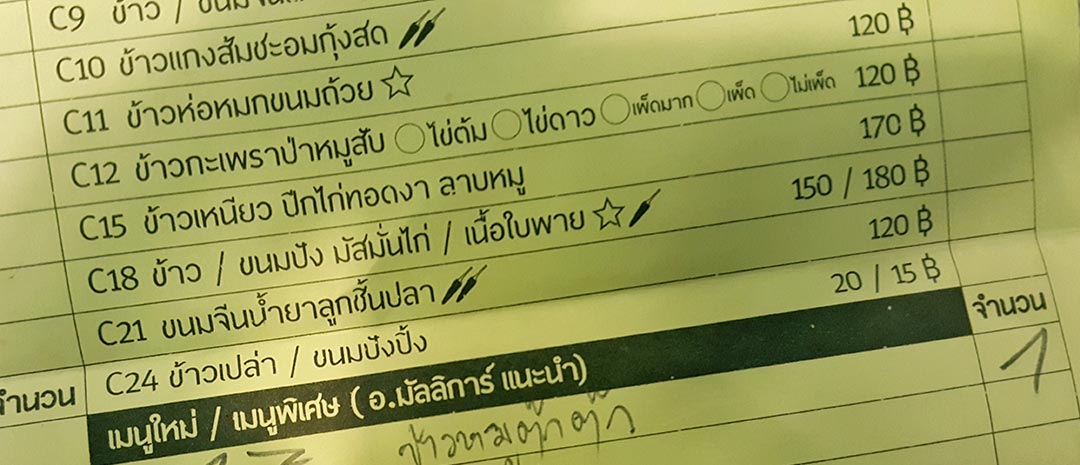 C9 ข้าว /
C10 ข้าวแกงส้มชะอมกุ้งสด
C11 ข้าวห่อหมกขนมถ้วย ☆ 120 ฿
C12 ข้าวกะเพราป่าหมูสับ ○ไข่ต้ม ○ไข่ดาว ○เผ็ดมาก ○เผ็ด ○ไม่เผ็ด 120 ฿
C15 ข้าวเหนียว ปีกไก่ทอดงา ลาบหมู 170 ฿
C18 ข้าว / ขนมปัง มัสมั่นไก่ / เนื้อใบพาย ☆ 150 / 180 ฿
C21 ขนมจีนน้ำยาลูกชิ้นปลา 120 ฿
จำนวน C24 ข้าวเปล่า / ขนมปังปิ้ง 20 / 15 ฿
เมนูใหม่ / เมนูพิเศษ ( อ.มัลลิการ์ แนะนำ) จำนวน
1